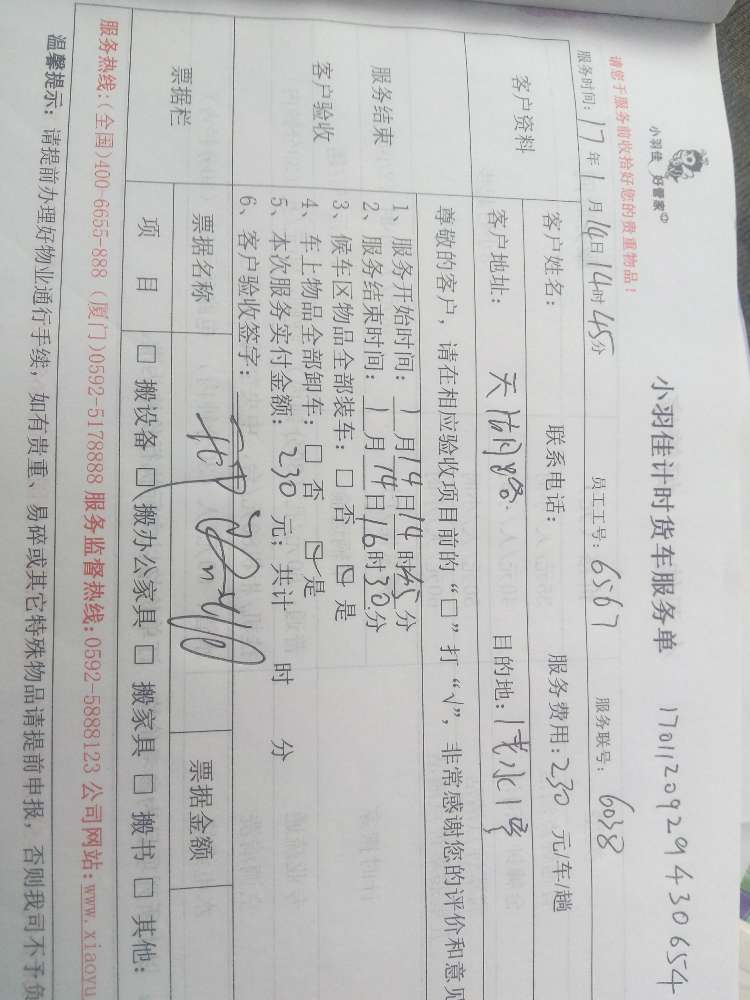 小羽佳 好管家
小羽佳计时货车服务单 170112092943065 4
请您于服务前收拾好您的贵重物品！
服务时间：17年1月14日14时45分 员工工号：6567 服务联号：6038
客户资料
客户姓名： 联系电话： 服务费用：230 元/车/趟
客户地址：天湖路 目的地：
尊敬的客户，请在相应验收项目前的“□”打“√”，非常感谢您的评价和意见
服务结束
客户验收
1、服务开始时间：1月14日14时45分
2、服务结束时间：1月14日16时30分
3、候车区物品全部装车：□ 否 ☑ 是
4、车上物品全部卸车：□ 否 ☑ 是
5、本次服务实付金额：230 元；共计 时 分
6、客户验收签字：
票据栏
票据名称 票据金额
项 目 □ 搬设备 ☑ 搬办公家具 □ 搬家具 □ 搬书 □ 其他：
服务热线：(全国)400-6655-888 (厦门)0592-5178888 服务监督热线：0592-5888123 公司网站：www.xiaoyu
温馨提示：请提前办理好物业通行手续，如有贵重、易碎或其它特殊物品请提前申报，否则我司不予负